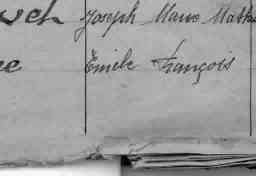 Joseph Marie Math
Emile François